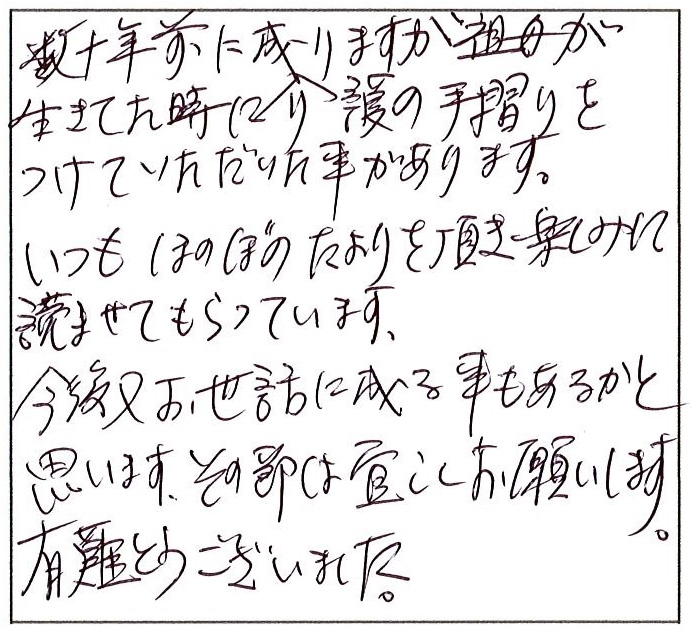 数十年前に成りますが祖母が
生きてた時に介護の手摺りを
つけていただいた事があります。
いつもほのぼのたよりを頂き楽しみに
読ませてもらっています、
今後又お世話に成る事もあるかと
思います、その節は宜しくお願いします。
有難とうございました。